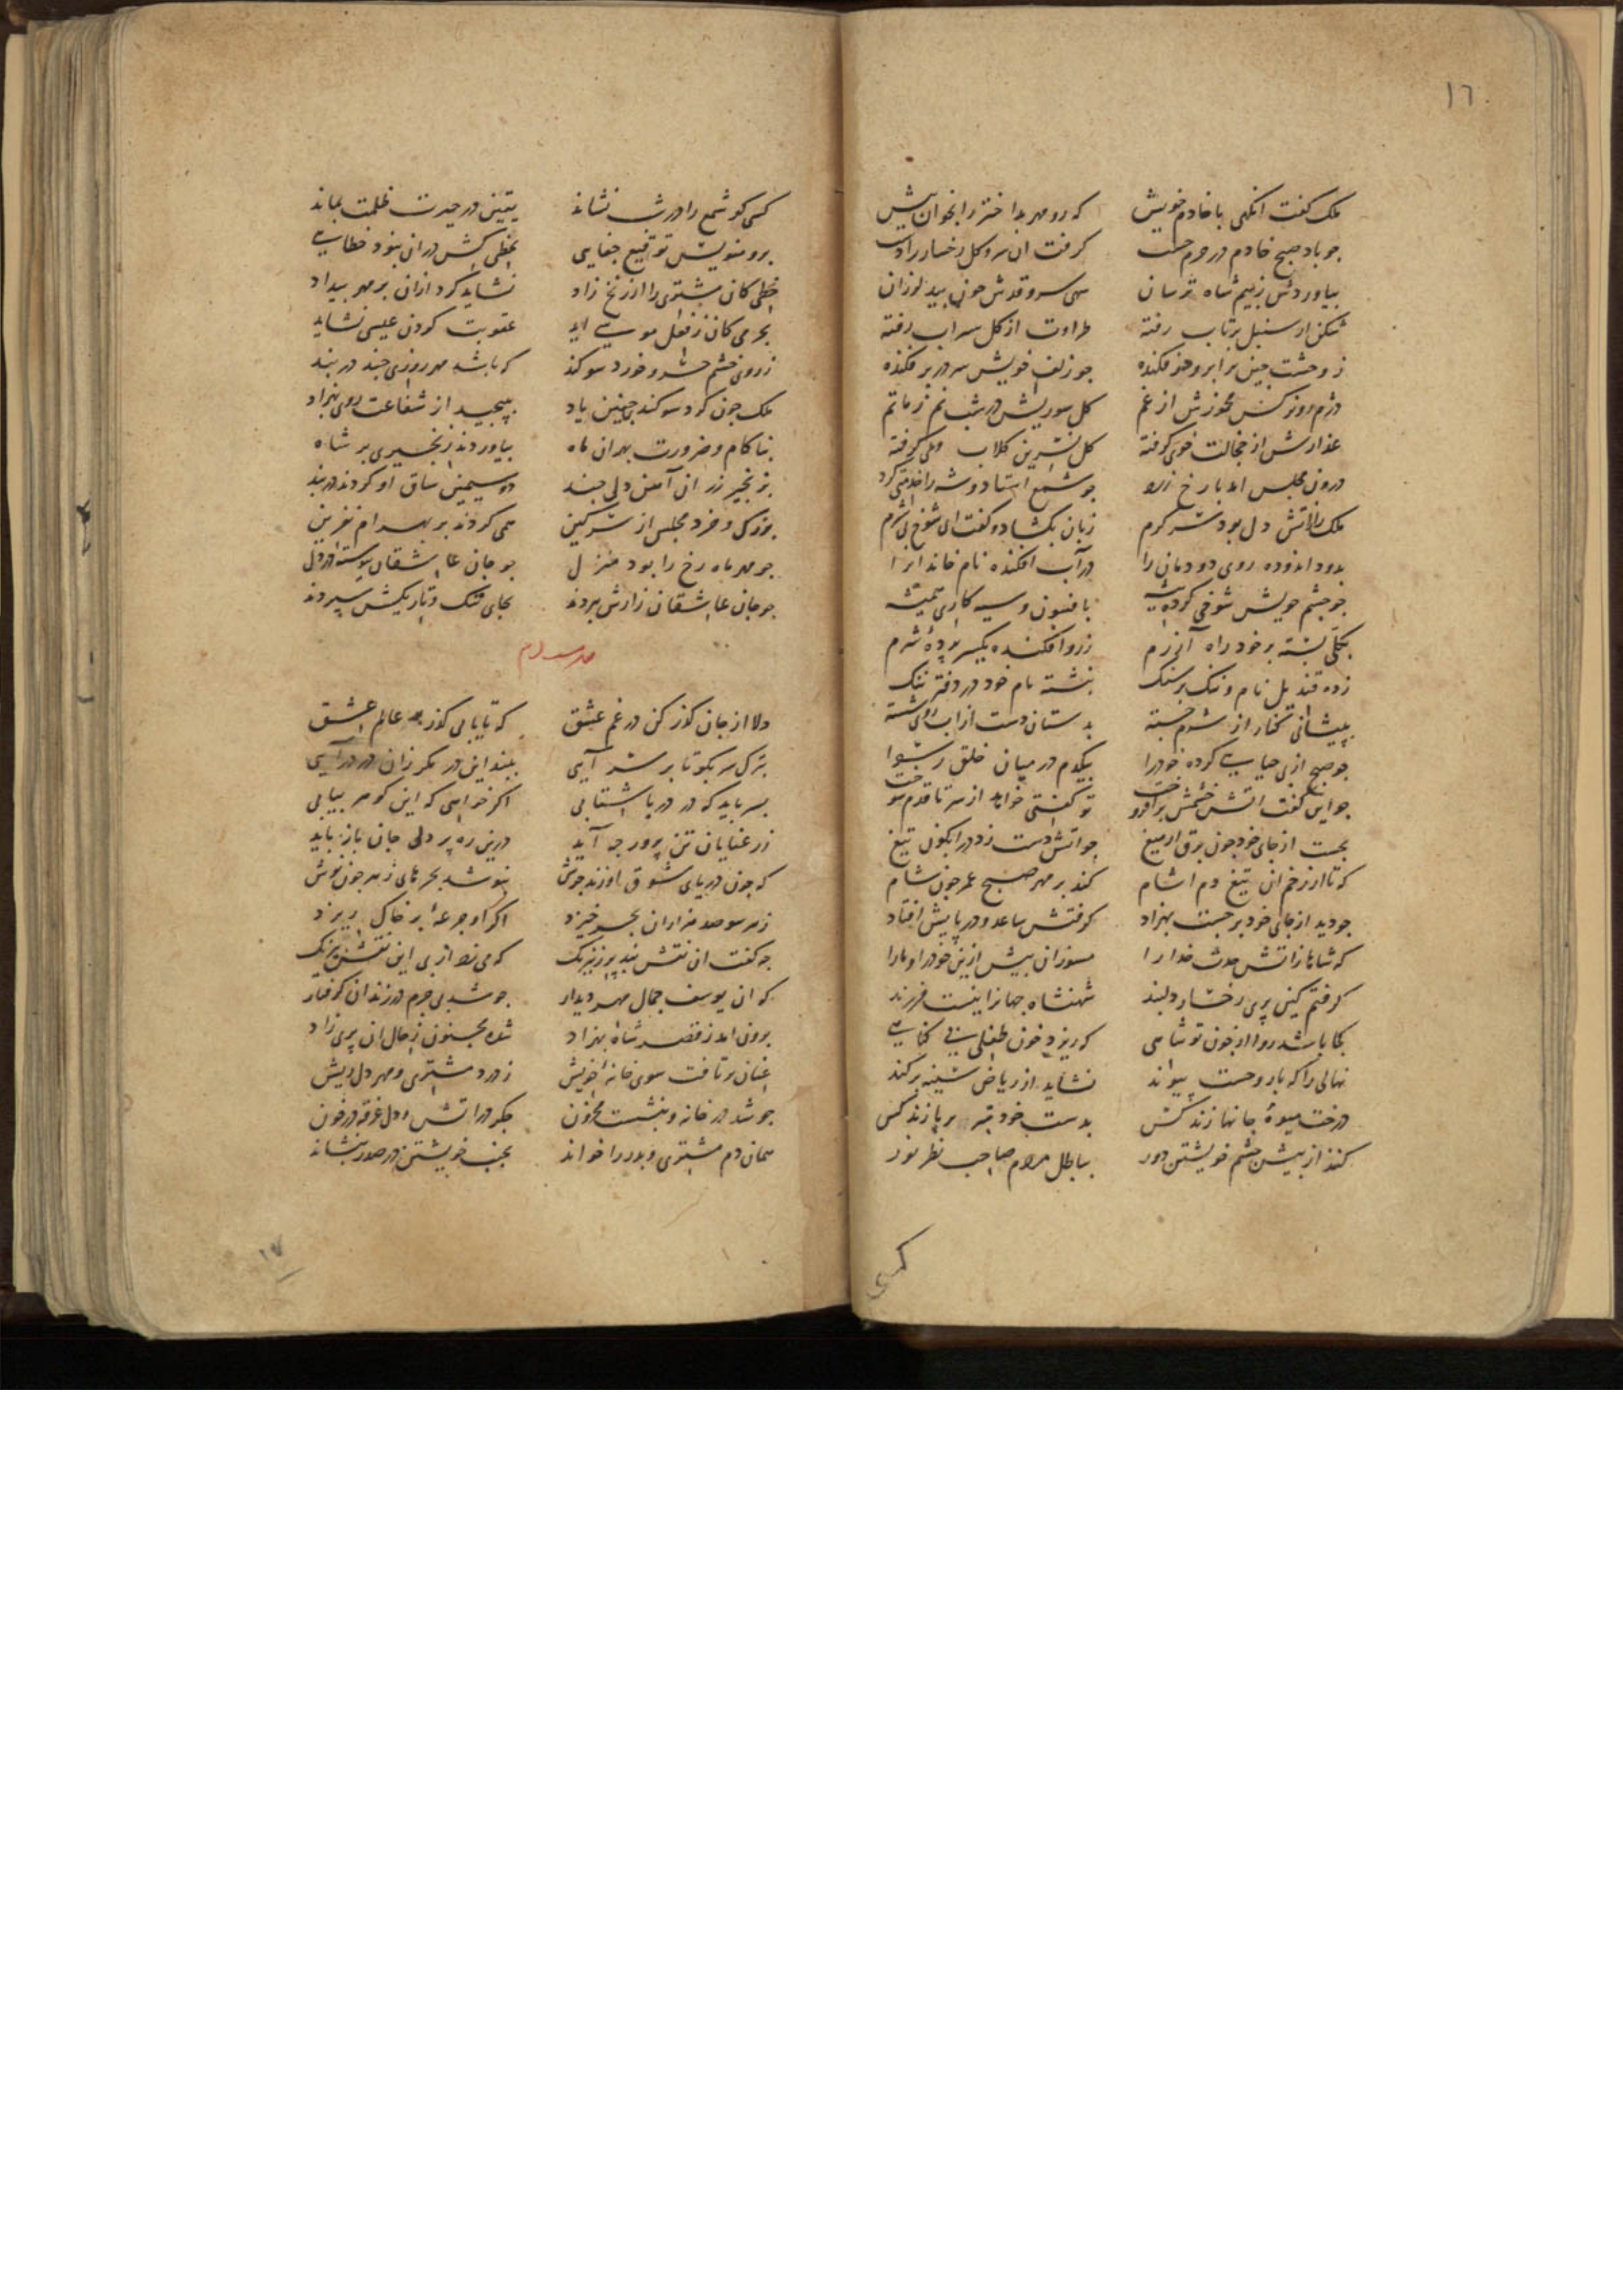 ١٦
ملک کفت انکهی با خادم خویش که رو مهر بد اختر را بخوان پیش
جو باد صبح خادم در حرم جست کرفت ان سرو کل رخسار را دست
بیاوردش ز بیم شاه ترسان سهی سرو قدش جون بید لرزان
شکن از سنبل پرتاب رفته طراوت از کل سیراب رفته
ز وحشت جین بر ابرو در فکنده جو زلف خویش سر در بر فکنده
دژم رو نرکس مخمورش از غم کل سوریش در شبنم ز ماتم
عذارش از خجالت خوی کرفته کل نسرین کلاب وی کرفته
درون مجلس امد با رخ زرد جو شمع استاد و شه را خدمتی کرد
ملک را ز اتش دل بود سر کرم زبان بکشاد و کفت ای شوخ بی شرم
بدود اندوده روی دودمان را در آب افکنده نام خاندان را
جو جشم خویش شوخی کرده پیشه بافسون و سیه کاری همیشه
بکلی بسته بر خود راه آزرم ز رو افکنده یکسر پرده شرم
زده قندیل نام و ننک بر سنک نبشته نام خود در دفتر ننک
به پیشانی کنار از شرم جسته بدستان دست از اب روی شسته
جو صبح از بی حیایی کرده خود را بیکدم در میان خلق رسوا
جو این کفت اتش خشمش برافروخت تو کفتی خواهد از سر تا قدم سوخت
بجست از جای خود جون برق از میغ جو اتش دست زد در ابکون تیغ
که تا از زخم ان تیغ دم اشام کند بر مهر صبح عمر جون شام
جو دید از جای خود برجست بهزاد کرفتش ساعد و در پایش افتاد
که شاها ز اتش حدت خدا را مسوزان بیش ازین خود را و ما را
کرفتم کین پری رخسار دلبند شهنشاه جهانرا نیست فرزند
کجا باشد روا از جون تو شاهی که ریزد خون طفلی بی کناهی
نهالی را که با روحست پیوند نشاید از ریاض سینه برکند
درخت میوهٔ جانها زند کس بدست خود تبر بر پا زند کس
کند از پیش جشم خویشتن دور بباطل مردم صاحب نظر نور
کسی
کسی کو شمع را در شب نشاند یقین در حیرت ظلمت بماند
برو منویس توقیع جفایی بخطی کش در ان نبود خطایی
خطی کان مشتری را از زنخ زاد نشاید کرد ازان بر مهر بیداد
بجرمی کان ز فعل موسی اید عقوبت کردن عیسی نشاید
ز روی خشم خسرو خورد سوکند که باشد مهر روزی جند در بند
ملک جون کرد سوکند جنین یاد بپیجید از شفاعت روی بهزاد
بناکام و ضرورت بهر ان ماه بیاوردند زنجیری بر شاه
بزنجیر زر ان آهن دلی جند دو سیمین ساق او کردند در بند
بزرک و خرد مجلس از سر کین همی کردند بر بهرام نفرین
جو مهر ماه رخ را بود منزل جو جان عاشقان پیوسته در دل
جو جان عاشقان زارش ببردند بجای تنک و تاریکش سپردند
دلا از جان کذر کن در غم عشق که تا یابی کذر بر عالم عشق
بترک سر بکو تا بر سر آیی ببند این در مکر زان در در آیی
بسر باید که در دریا شتابی اکر خواهی که این کوهر بیابی
ز رعنایان تن پرور جه آید درین ره پر دلی جان باز باید
که جون دریای شوق او زند جوش بنوشد بحرهای زهر جون نوش
ز هر سو صد هزاران بحر خیزد اکر او جرعهٔ بر خاک ریزد
جه کفت ان نقش بند پرز نیرنک که می زد از پی این نقش بیرنک
که ان یوسف جمال مهر دیدار جو شد بی جرم در زندان کرفتار
برون امد ز قصر شاه بهزاد شده مجنون ز حال ان پری زاد
عنان برتافت سوی خانه خویش ز درد مشتری و مهر دل ریش
جو شد در خانه و بنشست محزون جکر در اتش و دل غرقه در خون
همان دم مشتری و بدر را خواند بجنب خویشتن در صدر بنشاند
١٧